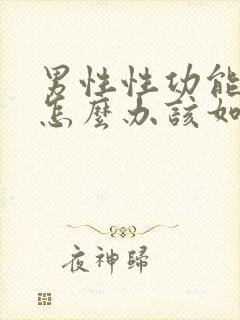 男性性功能
怎麼办該如
夜神歸